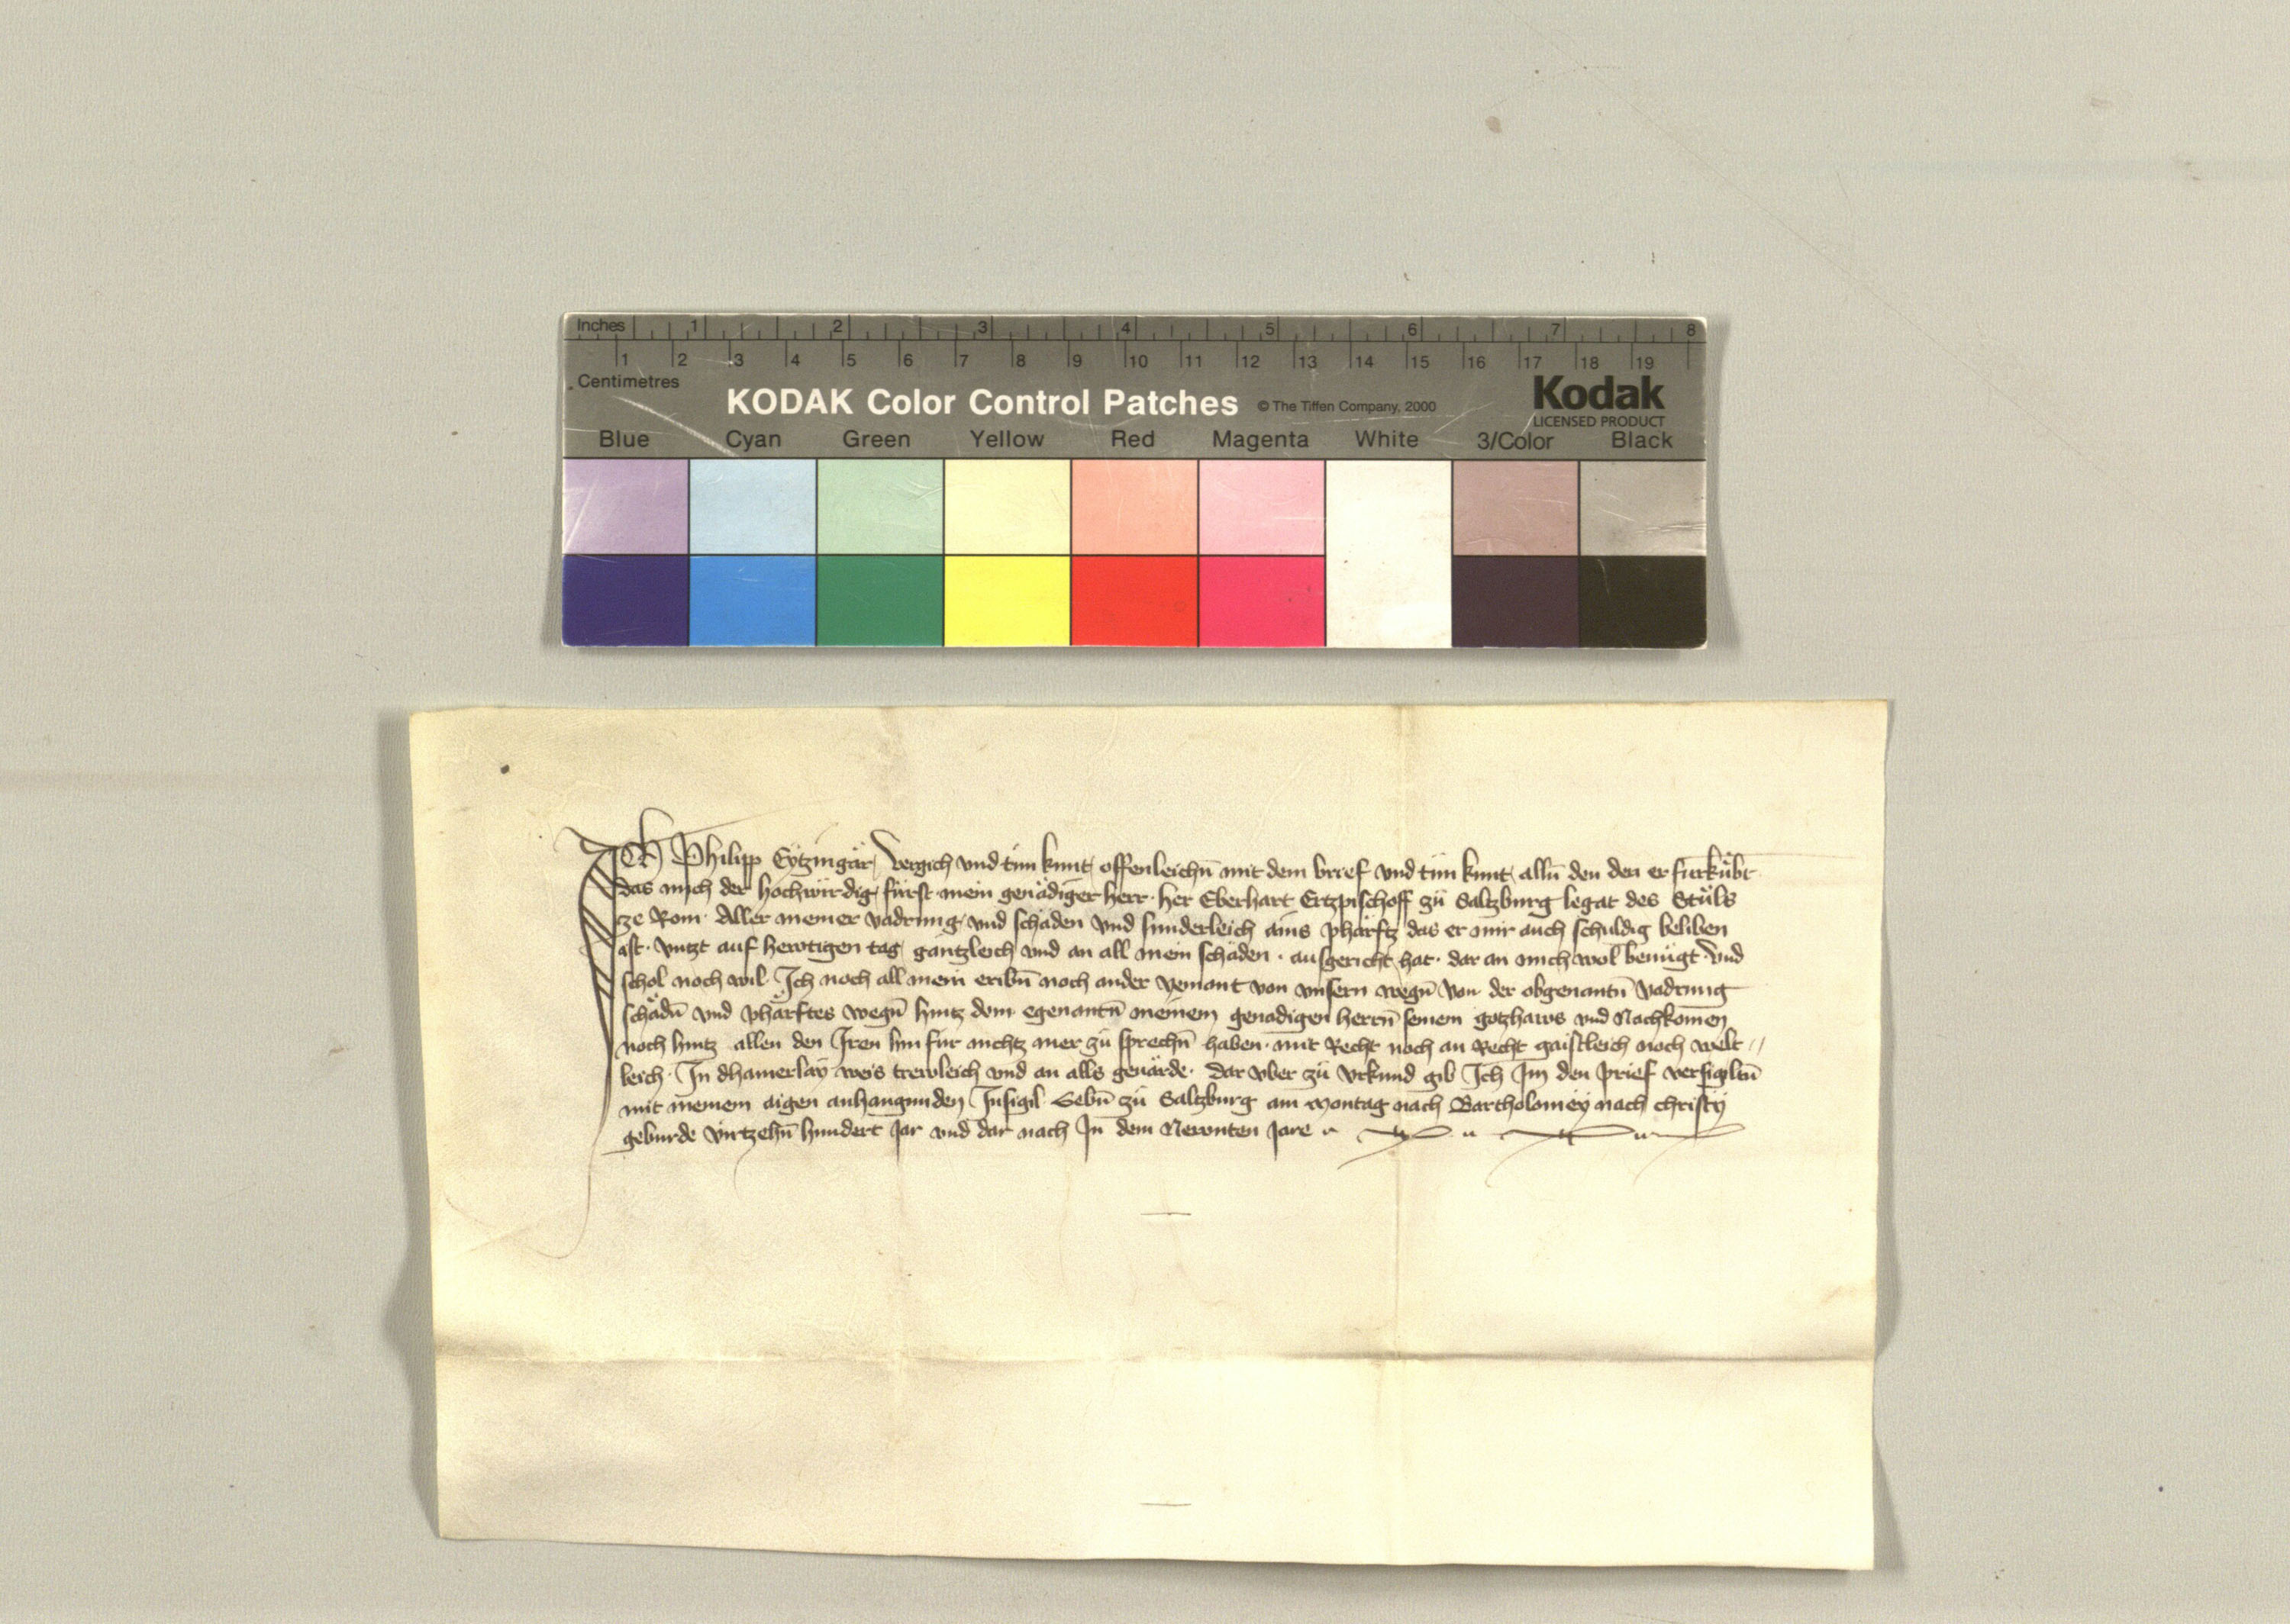 Inches 1 2 3 4 5 6 7 8
1 2 3 4 5 6 7 8 9 10 11 12 13 14 15 16 17 18 19
Centimetres
KODAK Color Control Patches © The Tiffen Company, 2000 Kodak
LICENSED PRODUCT
Blue Cyan Green Yellow Red Magenta White 3/Color Black
Ich Philipp Eytzingär vergich vnd tun kunt offenleichn̄ mit dem brief vnd tün kunt alln̄ den den er fürkübt
das mich der hochwirdig fürst mein genädiger herr her Eberhart Ertzpischoff zü Saltzburg legat des Stůls
ze Rom Aller meiner vadrung vnd schäden vnd sunderleich ains phärftz das er mir auch schuldig beliben
ist vntzt auf hewtigen tag gäntzleich vnd an all mein schäden ausgericht hat dar an mich wol benügt vnd
schol noch wil Ich noch all mein eribn̄ noch ander yemant von vnsern wegn̄ von der obgenantn̄ vadrung
schädn̄ vnd phärftes wegn̄ hintz dem egenantn̄ meinem genädigen herrn̄ seinem gotzhaws vnd Nachkomen̄
noch hintz allen den Iren hin für nichtz mer zü sprechn̄ haben mit Recht noch an Recht gaistleich noch welt〃
leich In dhainerlay weis trewleich vnd an alls geuärde dar vber zü vrkund gib Ich Im den prief versigiltn̄
mit meinem aigen anhangunden Insigil Gebn̄ zü Saltzburg am Montag nach Bartholomey nach christy
geburde virtzehn̄ hundert jar vnd dar nach In dem Newnten jare